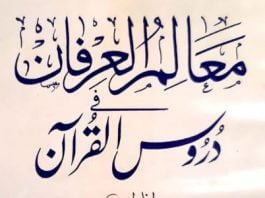 مَعَالِمُ الْعِرْفَان
فِی
دُرُوسُ الْقُرْآن